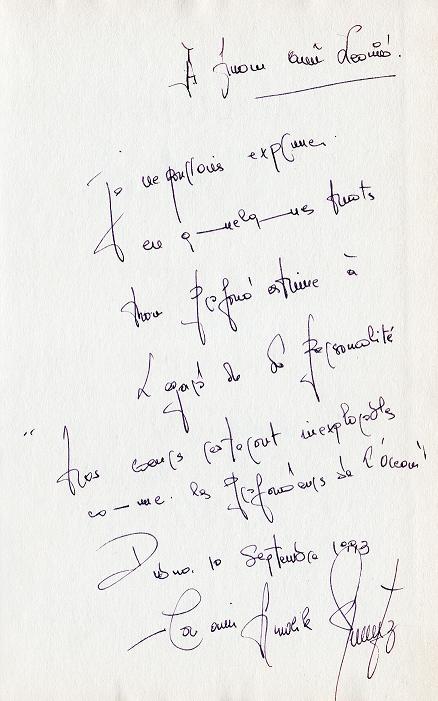 À mon ami Leonid.
Je ne pourrais exprimer
en quelques mots
mon profond estime à
l'égard de la personalité
"Nos coeurs resteront inexplorés
comme les profondeurs de l'Océan"
Dubna. 10 Septembre 1993
Ton ami